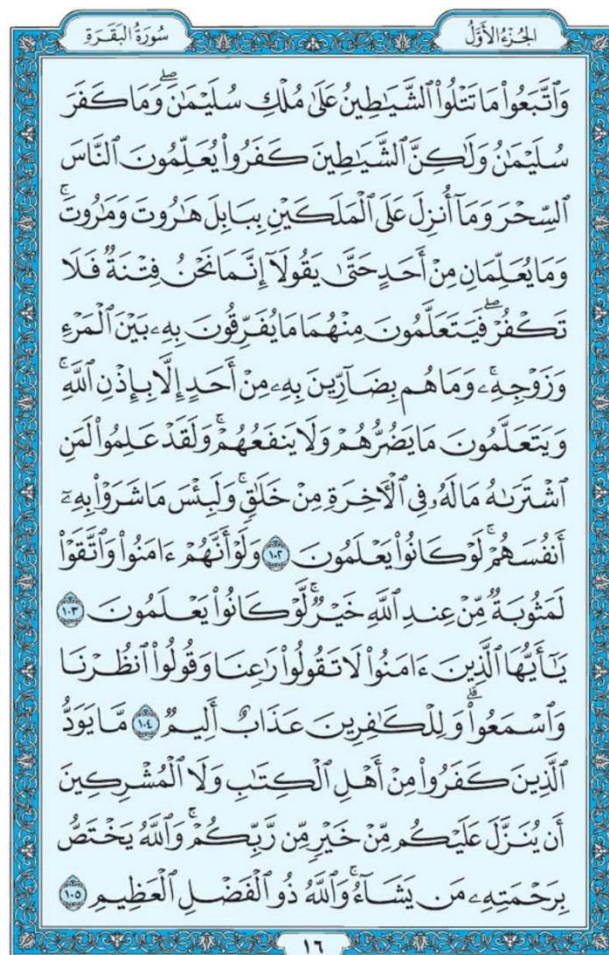 الجُزءُ الأَوَّلُ
سُورَةُ البَقَرَةِ
وَٱتَّبَعُوا۟ مَا تَتْلُوا۟ ٱلشَّيَـٰطِينُ عَلَىٰ مُلْكِ سُلَيْمَـٰنَ ۖ وَمَا كَفَرَ
سُلَيْمَـٰنُ وَلَـٰكِنَّ ٱلشَّيَـٰطِينَ كَفَرُوا۟ يُعَلِّمُونَ ٱلنَّاسَ
ٱلسِّحْرَ وَمَآ أُنزِلَ عَلَى ٱلْمَلَكَيْنِ بِبَابِلَ هَـٰرُوتَ وَمَـٰرُوتَ ۚ
وَمَا يُعَلِّمَانِ مِنْ أَحَدٍ حَتَّىٰ يَقُولَآ إِنَّمَا نَحْنُ فِتْنَةٌ فَلَا
تَكْفُرْ ۖ فَيَتَعَلَّمُونَ مِنْهُمَا مَا يُفَرِّقُونَ بِهِۦ بَيْنَ ٱلْمَرْءِ
وَزَوْجِهِۦ ۚ وَمَا هُم بِضَآرِّينَ بِهِۦ مِنْ أَحَدٍ إِلَّا بِإِذْنِ ٱللَّهِ ۚ
وَيَتَعَلَّمُونَ مَا يَضُرُّهُمْ وَلَا يَنفَعُهُمْ ۚ وَلَقَدْ عَلِمُوا۟ لَمَنِ
ٱشْتَرَىٰهُ مَا لَهُۥ فِى ٱلْـَٔاخِرَةِ مِنْ خَلَـٰقٍ ۚ وَلَبِئْسَ مَا شَرَوْا۟ بِهِۦٓ
أَنفُسَهُمْ ۚ لَوْ كَانُوا۟ يَعْلَمُونَ ١٠٢ وَلَوْ أَنَّهُمْ ءَامَنُوا۟ وَٱتَّقَوْا۟
لَمَثُوبَةٌ مِّنْ عِندِ ٱللَّهِ خَيْرٌ ۖ لَّوْ كَانُوا۟ يَعْلَمُونَ ١٠٣
يَـٰٓأَيُّهَا ٱلَّذِينَ ءَامَنُوا۟ لَا تَقُولُوا۟ رَٰعِنَا وَقُولُوا۟ ٱنظُرْنَا
وَٱسْمَعُوا۟ ۗ وَلِلْكَـٰفِرِينَ عَذَابٌ أَلِيمٌ ١٠٤ مَّا يَوَدُّ
ٱلَّذِينَ كَفَرُوا۟ مِنْ أَهْلِ ٱلْكِتَـٰبِ وَلَا ٱلْمُشْرِكِينَ
أَن يُنَزَّلَ عَلَيْكُم مِّنْ خَيْرٍ مِّن رَّبِّكُمْ ۗ وَٱللَّهُ يَخْتَصُّ
بِرَحْمَتِهِۦ مَن يَشَآءُ ۚ وَٱللَّهُ ذُو ٱلْفَضْلِ ٱلْعَظِيمِ ١٠٥
١٦